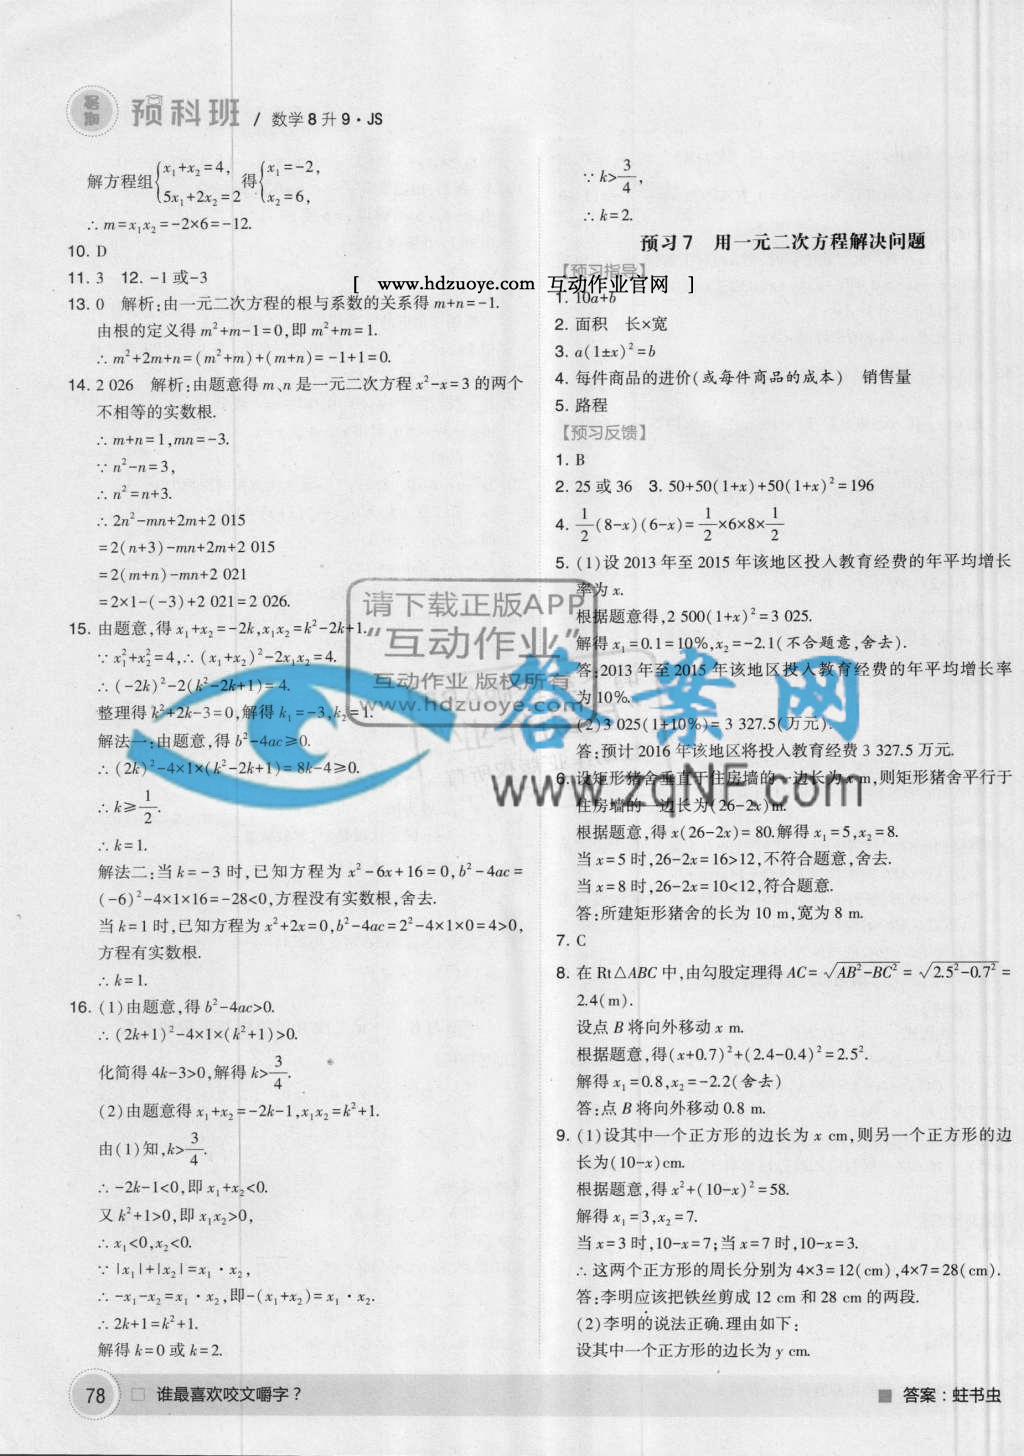 暑期 预科班 / 数学8升9·JS
解方程组{x₁+x₂=4, 5x₁+2x₂=2 得{x₁=-2, x₂=6,
∴m=x₁x₂=-2×6=-12.
10. D
11. 3 12. -1或-3
13. 0 解析:由一元二次方程的根与系数的关系得m+n=-1.
由根的定义得m²+m-1=0,即m²+m=1.
∴m²+2m+n=(m²+m)+(m+n)=-1+1=0.
14. 2 026 解析:由题意得m、n是一元二次方程x²-x=3的两个
不相等的实数根.
∴m+n=1,mn=-3.
∵n²-n=3,
∴n²=n+3.
∴2n²-mn+2m+2 015
=2(n+3)-mn+2m+2 015
=2(m+n)-mn+2 021
=2×1-(-3)+2 021=2 026.
15. 由题意,得x₁+x₂=-2k,x₁x₂=k²-2k+1.
∵x₁²+x₂²=4,∴(x₁+x₂)²-2x₁x₂=4.
∴(-2k)²-2(k²-2k+1)=4.
整理得k²+2k-3=0,解得k₁=-3,k₂=1.
解法一:由题意,得b²-4ac≥0.
∴(2k)²-4×1×(k²-2k+1)=8k-4≥0.
∴k≥1/2.
∴k=1.
解法二:当k=-3时,已知方程为x²-6x+16=0,b²-4ac=
(-6)²-4×1×16=-28<0,方程没有实数根,舍去.
当k=1时,已知方程为x²+2x=0,b²-4ac=2²-4×1×0=4>0,
方程有实数根.
∴k=1.
16. (1)由题意,得b²-4ac>0.
∴(2k+1)²-4×1×(k²+1)>0.
化简得4k-3>0,解得k>3/4.
(2)由题意得x₁+x₂=-2k-1,x₁x₂=k²+1.
由(1)知,k>3/4.
∴-2k-1<0,即x₁+x₂<0.
又k²+1>0,即x₁x₂>0,
∴x₁<0,x₂<0.
∵|x₁|+|x₂|=x₁·x₂,
∴-x₁-x₂=x₁·x₂,即-(x₁+x₂)=x₁·x₂.
∴2k+1=k²+1.
解得k=0或k=2.
∵k>3/4,
∴k=2.
预习7 用一元二次方程解决问题
【预习指导】
[ www.hdzuoye.com 互动作业官网 ]
1. 10a+b
2. 面积 长×宽
3. a(1±x)²=b
4. 每件商品的进价(或每件商品的成本) 销售量
5. 路程
【预习反馈】
1. B
2. 25或36 3. 50+50(1+x)+50(1+x)²=196
4. 1/2(8-x)(6-x)=1/2×6×8×1/2
5. (1)设2013年至2015年该地区投入教育经费的年平均增长
率为x.
根据题意得,2 500(1+x)²=3 025.
解得x₁=0.1=10%,x₂=-2.1(不合题意,舍去).
答:2013年至2015年该地区投入教育经费的年平均增长率
为10%.
(2)3 025(1+10%)=3 327.5(万元).
答:预计2016年该地区将投入教育经费3 327.5万元.
6. 设矩形猪舍垂直于住房墙的一边长为x m,则矩形猪舍平行于
住房墙的一边长为(26-2x)m.
根据题意,得x(26-2x)=80.解得x₁=5,x₂=8.
当x=5时,26-2x=16>12,不符合题意,舍去.
当x=8时,26-2x=10<12,符合题意.
答:所建矩形猪舍的长为10 m,宽为8 m.
7. C
8. 在Rt△ABC中,由勾股定理得AC=√(AB²-BC²)=√(2.5²-0.7²)=
2.4(m).
设点B将向外移动x m.
根据题意,得(x+0.7)²+(2.4-0.4)²=2.5².
解得x₁=0.8,x₂=-2.2(舍去)
答:点B将向外移动0.8 m.
9. (1)设其中一个正方形的边长为x cm,则另一个正方形的边
长为(10-x)cm.
根据题意,得x²+(10-x)²=58.
解得x₁=3,x₂=7.
当x=3时,10-x=7;当x=7时,10-x=3.
∴这两个正方形的周长分别为4×3=12(cm),4×7=28(cm).
答:李明应该把铁丝剪成12 cm和28 cm的两段.
(2)李明的说法正确.理由如下:
设其中一个正方形的边长为y cm.
请下载正版APP
“互动作业”
互动作业 版权所有
www.hdzuoye.com
答案网
www.zqnf.com
78 □ 谁最喜欢咬文嚼字?
■ 答案:蛀书虫